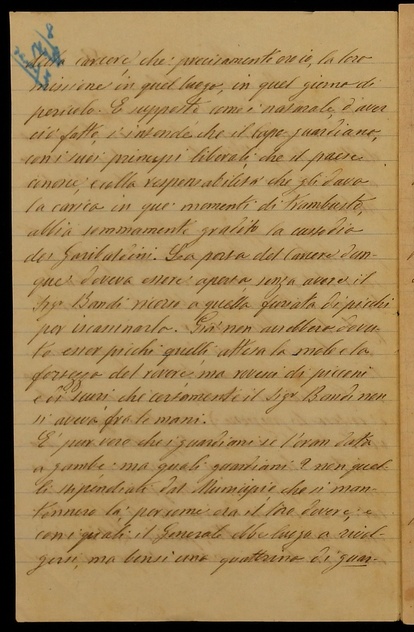 carcere, che precisamente era la loro
missione in quel luogo, in quel giorno di
pericolo. E supposto come è naturale, d'aver
ciò fatto, s'intende che il capo guardiano,
con i suoi principii liberali, che il paese
conosce, e colla responsabilità che gli dava
la carica in que' momenti di trambusto,
abbia sommamente gradito la custodia
dei Garibaldini. La porta del Carcere dun-
que doveva essere aperta, senza avere il
Sigr Bandi ricorso a quella di picchi
per incamminarla. Già non avrebbero dovu-
to esser picchi quelli, attesa la mole e la
fortezza del rovere, ma rovesci di picconi
e di scuri che certamente il Sigr Bandi non
si aveva fra le mani.
È pur vero che i guardiani se l'eran data
a gambe: ma quali guardiani? non quel-
li stipendiati dal Municipio che si man-
tennero là, per come era il loro dovere, e
con i quali il Generale ebbe luogo a rivol-
gersi, ma bensì una quattrina di guar-